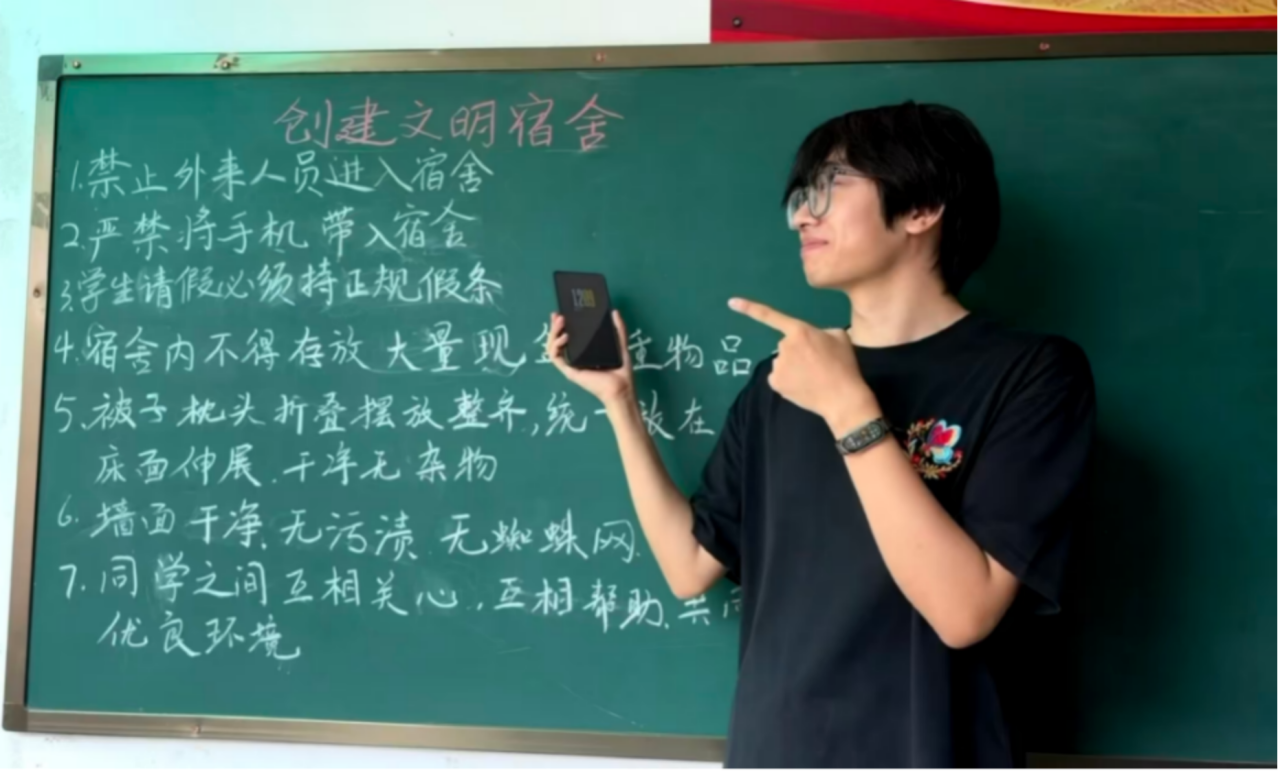 创建文明宿舍
1.禁止外来人员进入宿舍
2.严禁将手机带入宿舍
3.学生请假必须持正规假条
4.宿舍内不得存放大量现 重物品
5.被子枕头折叠摆放整齐,统一放在
床面伸展.干净无杂物
6.墙面干净.无污渍.无蜘蛛网.
7.同学之间互相关心.互相帮助.共同
优良环境
12